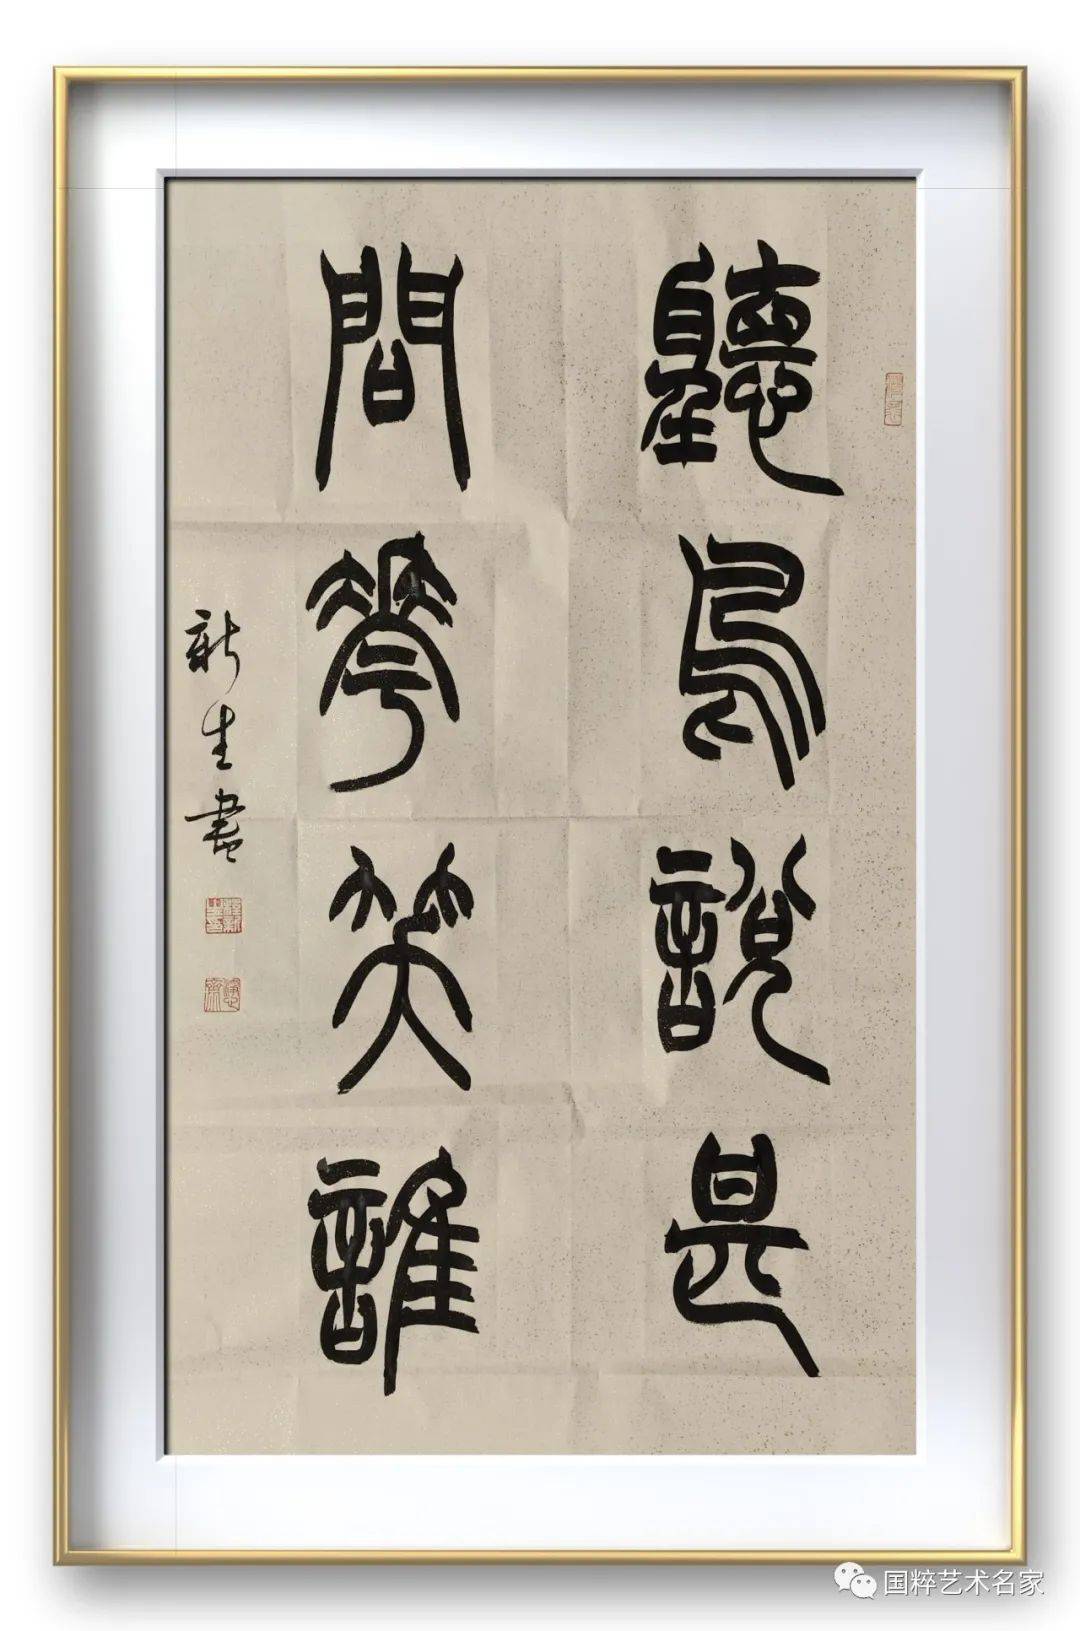 聽鳥說甚
問華笑誰
新生書
国粹艺术名家